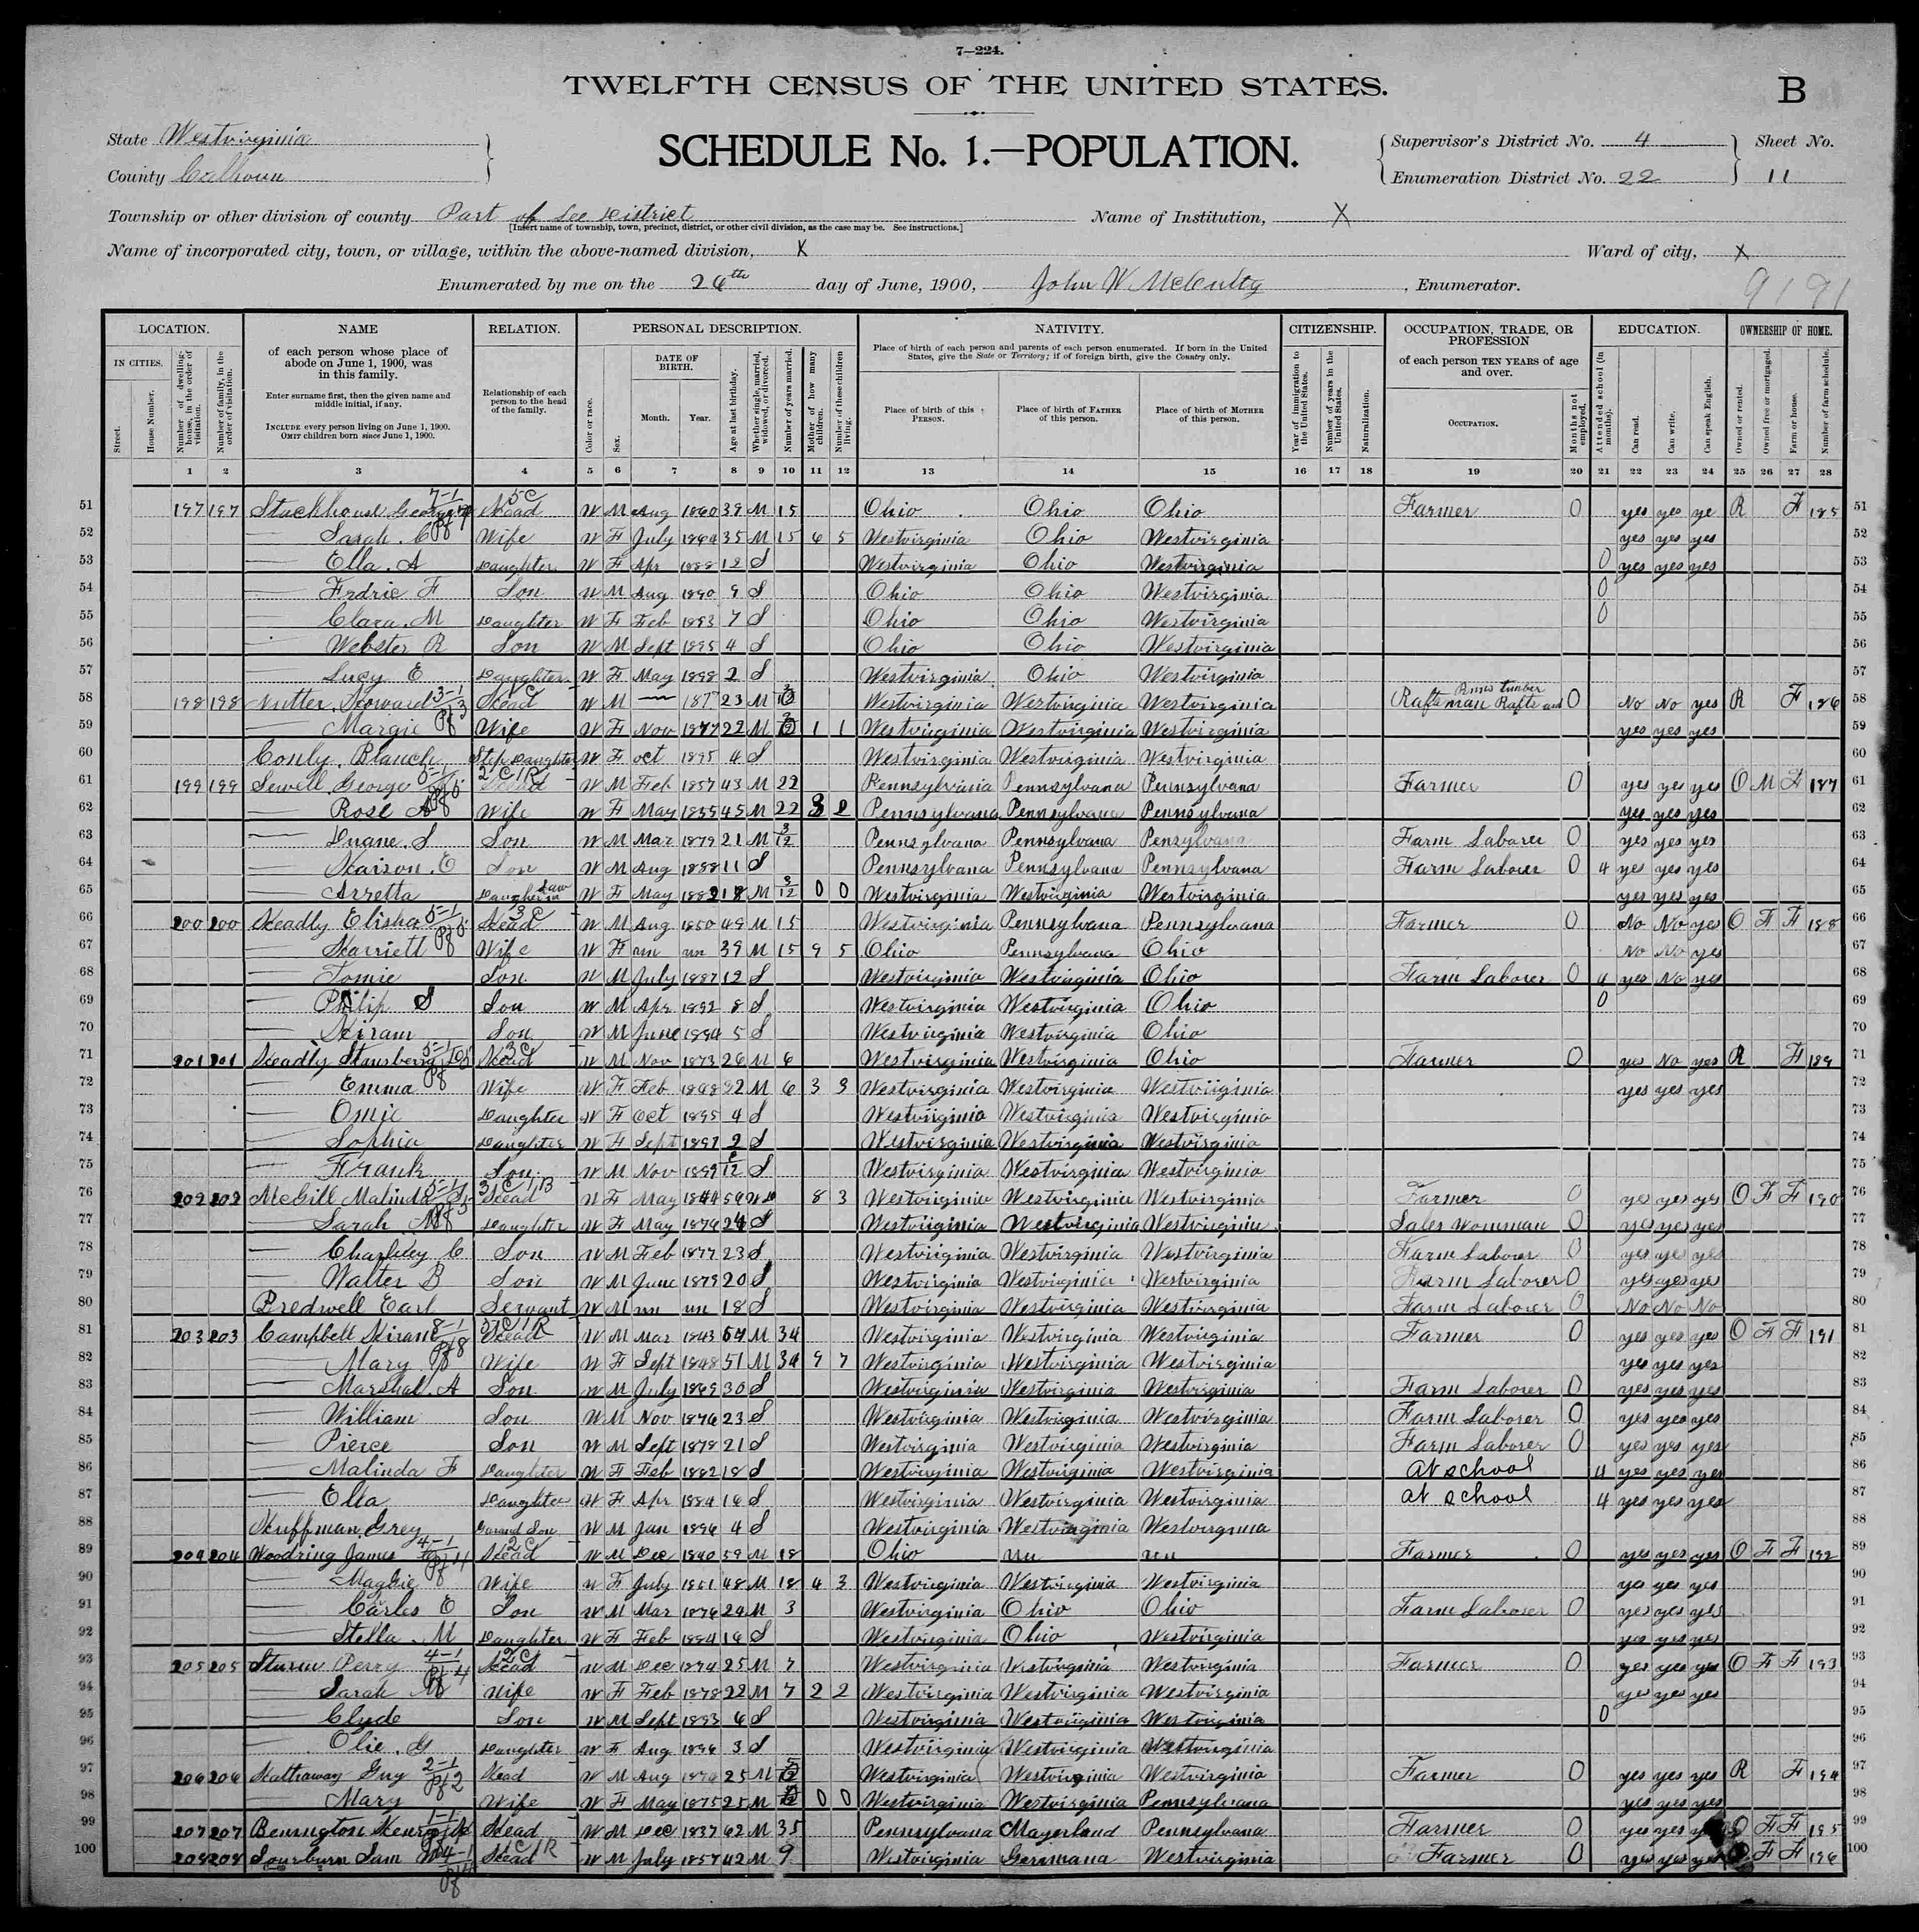 7—224.
TWELFTH CENSUS OF THE UNITED STATES.
B
State Westvirginia
County Calhoun
SCHEDULE No. 1.—POPULATION.
Supervisor's District No. 4
Enumeration District No. 22
Sheet No.
11
Township or other division of county Part of Lee District
[Insert name of township, town, precinct, district, or other civil division, as the case may be. See instructions.]
Name of Institution, X
Name of incorporated city, town, or village, within the above-named division, X
Ward of city, X
Enumerated by me on the 26th day of June, 1900, John W McCulty, Enumerator.
9191
LOCATION. NAME RELATION. PERSONAL DESCRIPTION. NATIVITY. CITIZENSHIP. OCCUPATION, TRADE, OR PROFESSION EDUCATION. OWNERSHIP OF HOME.
IN CITIES. Street. House Number. Number of dwelling-house, in the order of visitation. Number of family, in the order of visitation.
of each person whose place of abode on June 1, 1900, was in this family.
Enter surname first, then the given name and middle initial, if any.
INCLUDE every person living on June 1, 1900. OMIT children born since June 1, 1900.
Relationship of each person to the head of the family.
Color or race. Sex. DATE OF BIRTH. Month. Year. Age at last birthday. Whether single, married, widowed, or divorced. Number of years married. Mother of how many children. Number of these children living.
Place of birth of each person and parents of each person enumerated. If born in the United States, give the State or Territory; if of foreign birth, give the Country only.
Place of birth of this PERSON. Place of birth of FATHER of this person. Place of birth of MOTHER of this person.
Year of immigration to the United States. Number of years in the United States. Naturalization.
of each person TEN YEARS of age and over.
OCCUPATION. Months not employed.
Attended school (in months). Can read. Can write. Can speak English.
Owned or rented. Owned free or mortgaged. Farm or house. Number of farm schedule.
1 2 3 4 5 6 7 8 9 10 11 12 13 14 15 16 17 18 19 20 21 22 23 24 25 26 27 28
51 197 197 Stackhouse George Head W M Aug 1860 39 M 15 Ohio Ohio Ohio Farmer 0 yes yes ye R F 185 51
52 Sarah C Wife W F July 1864 35 M 15 6 5 Westvirginia Ohio Westvirginia yes yes yes 52
53 Ella. A Daughter W F Apr 1888 12 S Westvirginia Ohio Westvirginia 0 yes yes yes 53
54 Fedric F Son W M Aug 1890 9 S Ohio Ohio Westvirginia 0 54
55 Clara. M Daughter W F Feb 1893 7 S Ohio Ohio Westvirginia 0 55
56 Webster R Son W M Sept 1895 4 S Ohio Ohio Westvirginia 56
57 Lucy E Daughter W F May 1898 2 S Westvirginia Ohio Westvirginia 57
58 198 198 Nutter, Head W M 187 23 M Westvirginia Westvirginia Westvirginia Raftsman Runs timber Rafts and 0 No No yes R F 186 58
59 Margie Wife W F Nov 1877 22 M 1 1 Westvirginia Westvirginia Westvirginia yes yes yes 59
60 Conly. Blanch Step Daughter W F oct 1895 4 S Westvirginia Westvirginia Westvirginia 60
61 199 199 Sewell, George W M Feb 1857 43 M 22 Pennsylvania Pennsylvana Pennsylvana Farmer 0 yes yes yes O M F 187 61
62 Rose A Wife W F May 1855 45 M 22 3 2 Pennsylvana Pennsylvana Pennsylvana yes yes yes 62
63 Duane. S Son W M Mar 1879 21 M 3/12 Pennsylvana Pennsylvana Pensylvana Farm Laborer 0 yes yes yes 63
64 Harison. E Son W M Aug 1888 11 S Pennsylvana Pennsylvana Pennsylvana Farm Laborer 0 4 yes yes yes 64
65 Arretta Daughter in Law W F May 1882 18 M 3/12 0 0 Westvirginia Westvirginia Westvirginia yes yes yes 65
66 200 200 Headly Elisha Head W M Aug 1850 49 M 15 Westvirginia Pennsylvana Pennsylvana Farmer 0 No No yes O F F 188 66
67 Harriett Wife W F un un 39 M 15 9 5 Ohio Pennsylvana Ohio No No yes 67
68 Tomie Son W M July 1887 12 S Westvirginia Westvirginia Ohio Farm Laborer 0 4 yes No yes 68
69 Philip S Son W M Apr 1892 8 S Westvirginia Westvirginia Ohio 0 69
70 Hiram Son W M June 1894 5 S Westvirginia Westvirginia Ohio 70
71 201 201 Headly Stansberry Head W M Nov 1873 26 M 6 Westvirginia Westvirginia Ohio Farmer 0 yes No yes R F 189 71
72 Emma Wife W F Feb 32 M 6 3 3 Westvirginia Westvirginia Westvirginia yes yes yes 72
73 Omie Daughter W F Oct 1895 4 S Westvirginia Westvirginia Westvirginia 73
74 Sophia Daughter W F Sept 1897 2 S Westvirginia Westvirginia Westvirginia 74
75 Frank Son W M Nov 1899 S Westvirginia Westvirginia Westvirginia 75
76 202 202 McGill Malinda Head W F May 1844 Wd 8 3 Westvirginia Westvirginia Westvirginia Farmer 0 yes yes yes O F F 190 76
77 Sarah Daughter W F May 1876 24 S Westvirginia Westvirginia Westvirginia Sales Womman 0 yes yes yes 77
78 Charliey C. Son W M Feb 1877 23 S Westvirginia Westvirginia Westvirginia Farm Laborer 0 yes yes yes 78
79 Walter B Son W M June 1879 20 S Westvirginia Westvirginia Westvirginia Farm Laborer 0 yes yes yes 79
80 Bredwell Earl Servant W M un un 18 S Westvirginia Westvirginia Westvirginia Farm Laborer 0 No No No 80
81 203 203 Campbell Hiram Head W M Mar 1843 57 M 34 Westvirginia Westvirginia Westvirginia Farmer 0 yes yes yes O F F 191 81
82 Mary Wife W F Sept 1848 51 M 34 9 7 Westvirginia Westvirginia Westvirginia yes yes yes 82
83 Marshal. A Son W M July 1869 30 S Westvirginia Westvirginia Westvirginia Farm Laborer 0 yes yes yes 83
84 William Son W M Nov 1876 23 S Westvirginia Westvirginia Westvirginia Farm Laborer 0 yes yes yes 84
85 Pierce Son W M Sept 1878 21 S Westvirginia Westvirginia Westvirginia Farm Laborer 0 yes yes yes 85
86 Malinda F Daughter W F Feb 1882 18 S Westvirginia Westvirginia Westvirginia At school 4 yes yes yes 86
87 Ella Daughter W F Apr 1884 16 S Westvirginia Westvirginia Westvirginia at school 4 yes yes yes 87
88 Huffman, Grey Grand Son W M Jan 1896 4 S Westvirginia Westvirginia Westvirginia 88
89 204 204 Woodring James Head W M Dec 1840 59 M 18 Ohio un un Farmer 0 yes yes yes O F F 192 89
90 Maggie Wife W F July 1851 48 M 18 4 3 Westvirginia Westvirginia Westvirginia yes yes yes 90
91 Carles E Son W M Mar 1876 24 M 3 Westvirginia Ohio Ohio Farm Laborer 0 yes yes yes 91
92 Stella. M Daughter W F Feb 1884 16 S Westvirginia Ohio Westvirginia yes yes yes 92
93 205 205 Sturm Perry Head W M Dec 1874 25 M 7 Westvirginia Westvirginia Westvirginia Farmer 0 yes yes yes O F F 193 93
94 Sarah M Wife W F Feb 1878 22 M 7 2 2 Westvirginia Westvirginia Westvirginia yes yes yes 94
95 Clyde Son W M Sept 1893 6 S Westvirginia Westvirginia Westvirginia 0 95
96 Olie. G Daughter W F Aug 1896 3 S Westvirginia Westvirginia Westvirginia 96
97 206 206 Hathaway Guy Head W M Aug 1874 25 M Westvirginia Westvirginia Westvirginia Farmer 0 yes yes yes R F 194 97
98 Mary Wife W F May 1875 25 M 0 0 Westvirginia Westvirginia Pennsylvana yes yes yes 98
99 207 207 Benington Henry Head W M Dec 1837 62 M 35 Pennsylvana Mayerland Pennsylvana Farmer 0 yes yes O F F 195 99
100 208 208 Sam Head W M July 1857 42 M 9 Westvirginia Germana Westvirginia Farmer 0 yes yes yes F F 196 100